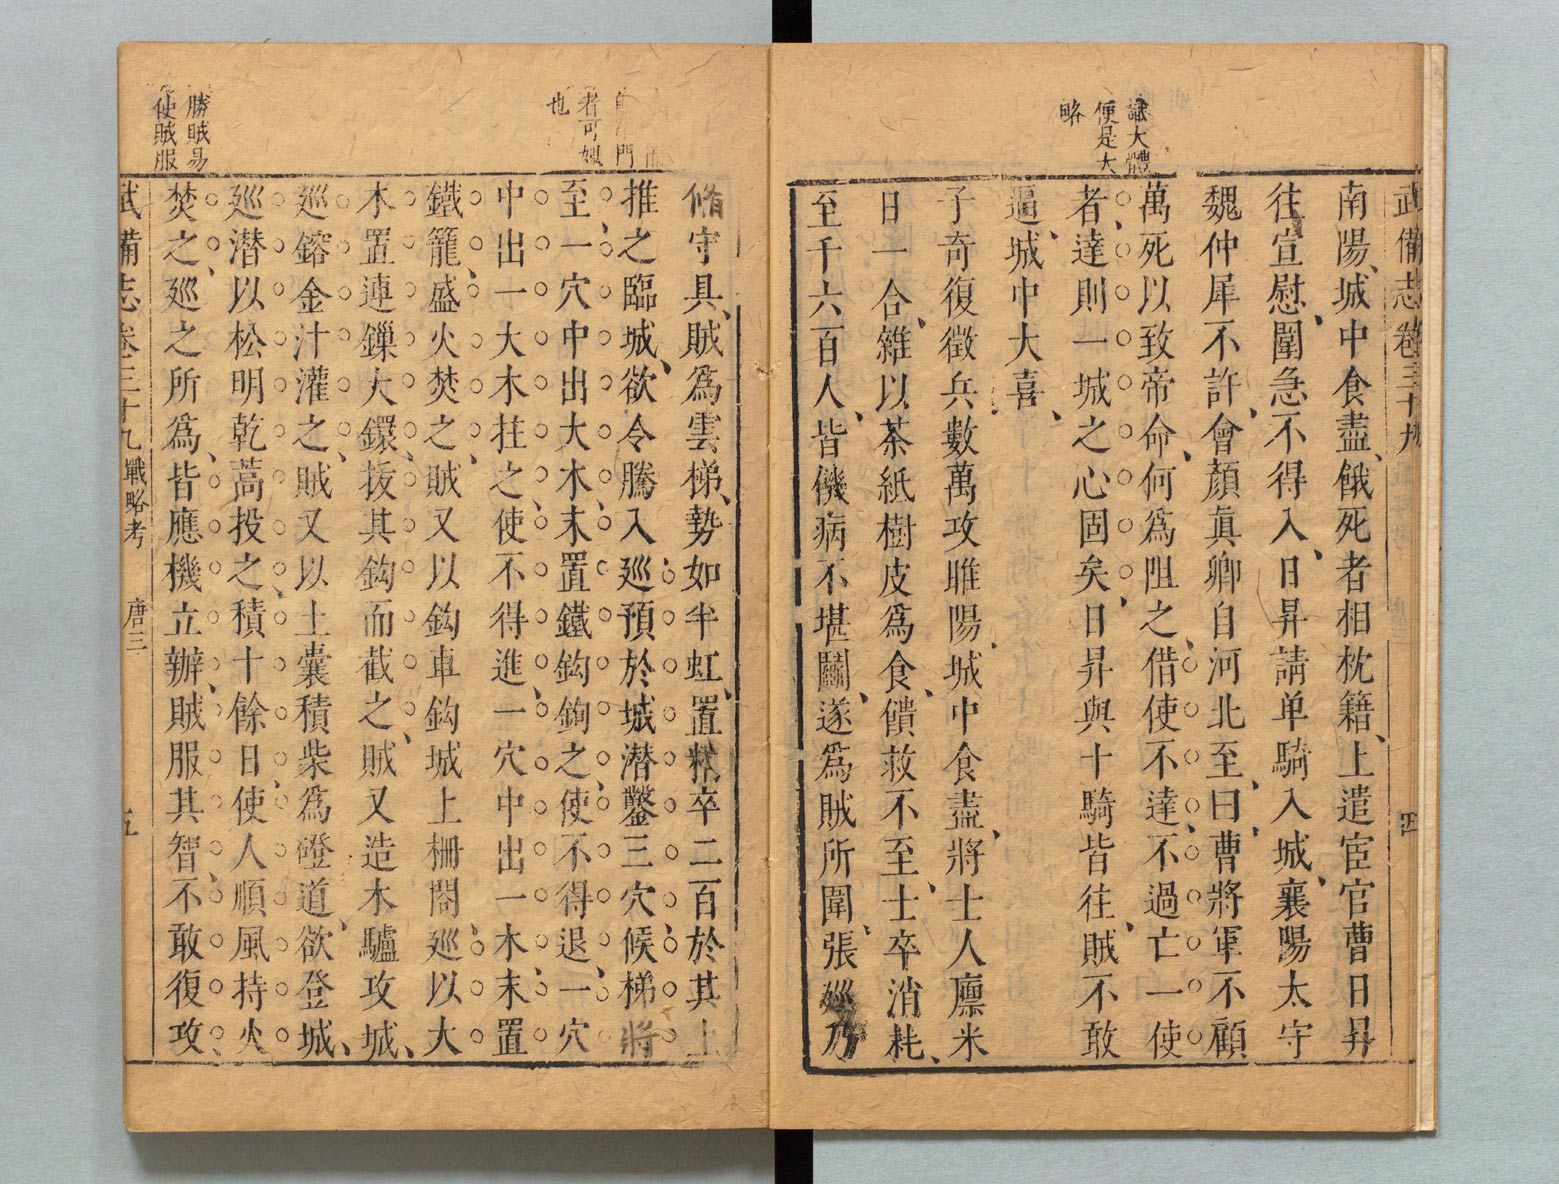 武備志卷三十九
四
識大體
便是大
略
南陽、城中食盡、餓死者相枕籍、上遣宦官曹日昇
往宣慰、圍急不得入、日昇請单騎入城、襄陽太守
魏仲犀不許、會顏眞卿自河北至、曰、曹將軍不顧
萬死以致帝命、何爲阻之、借使不達、不過亡一使
者、達則一城之心固矣、日昇與十騎皆往、賊不敢
逼、城中大喜、
子奇復徵兵數萬攻睢陽、城中食盡、將士人廩米
日一合、雜以茶紙樹皮爲食、饋救不至、士卒消耗、
至千六百人、皆饑病不堪鬭、遂爲賊所圍、張廵乃
者可
也
門
脩守具、賊爲雲梯、勢如半虹、置精卒二百於其上
推之臨城、欲令騰入、廵預於城潜鑿三穴、候梯將
至、一穴中出大木、末置鐵鈎鉤之、使不得退、一穴
中出一大木拄之、使不得進、一穴中出一木、末置
鐵籠、盛火焚之、賊又以鈎車鈎城上柵閣、廵以大
木置連鏁大鐶、拔其鈎而截之、賊又造木驢攻城、
廵鎔金汁灌之、賊又以土囊積柴爲磴道、欲登城、
廵潜以松明乾蒿投之、積十餘日、使人順風持火
焚之、廵之所爲、皆應機立辦、賊服其智、不敢復攻、
勝賊易
使賊服
武備志卷三十九 戰略考 唐三 五